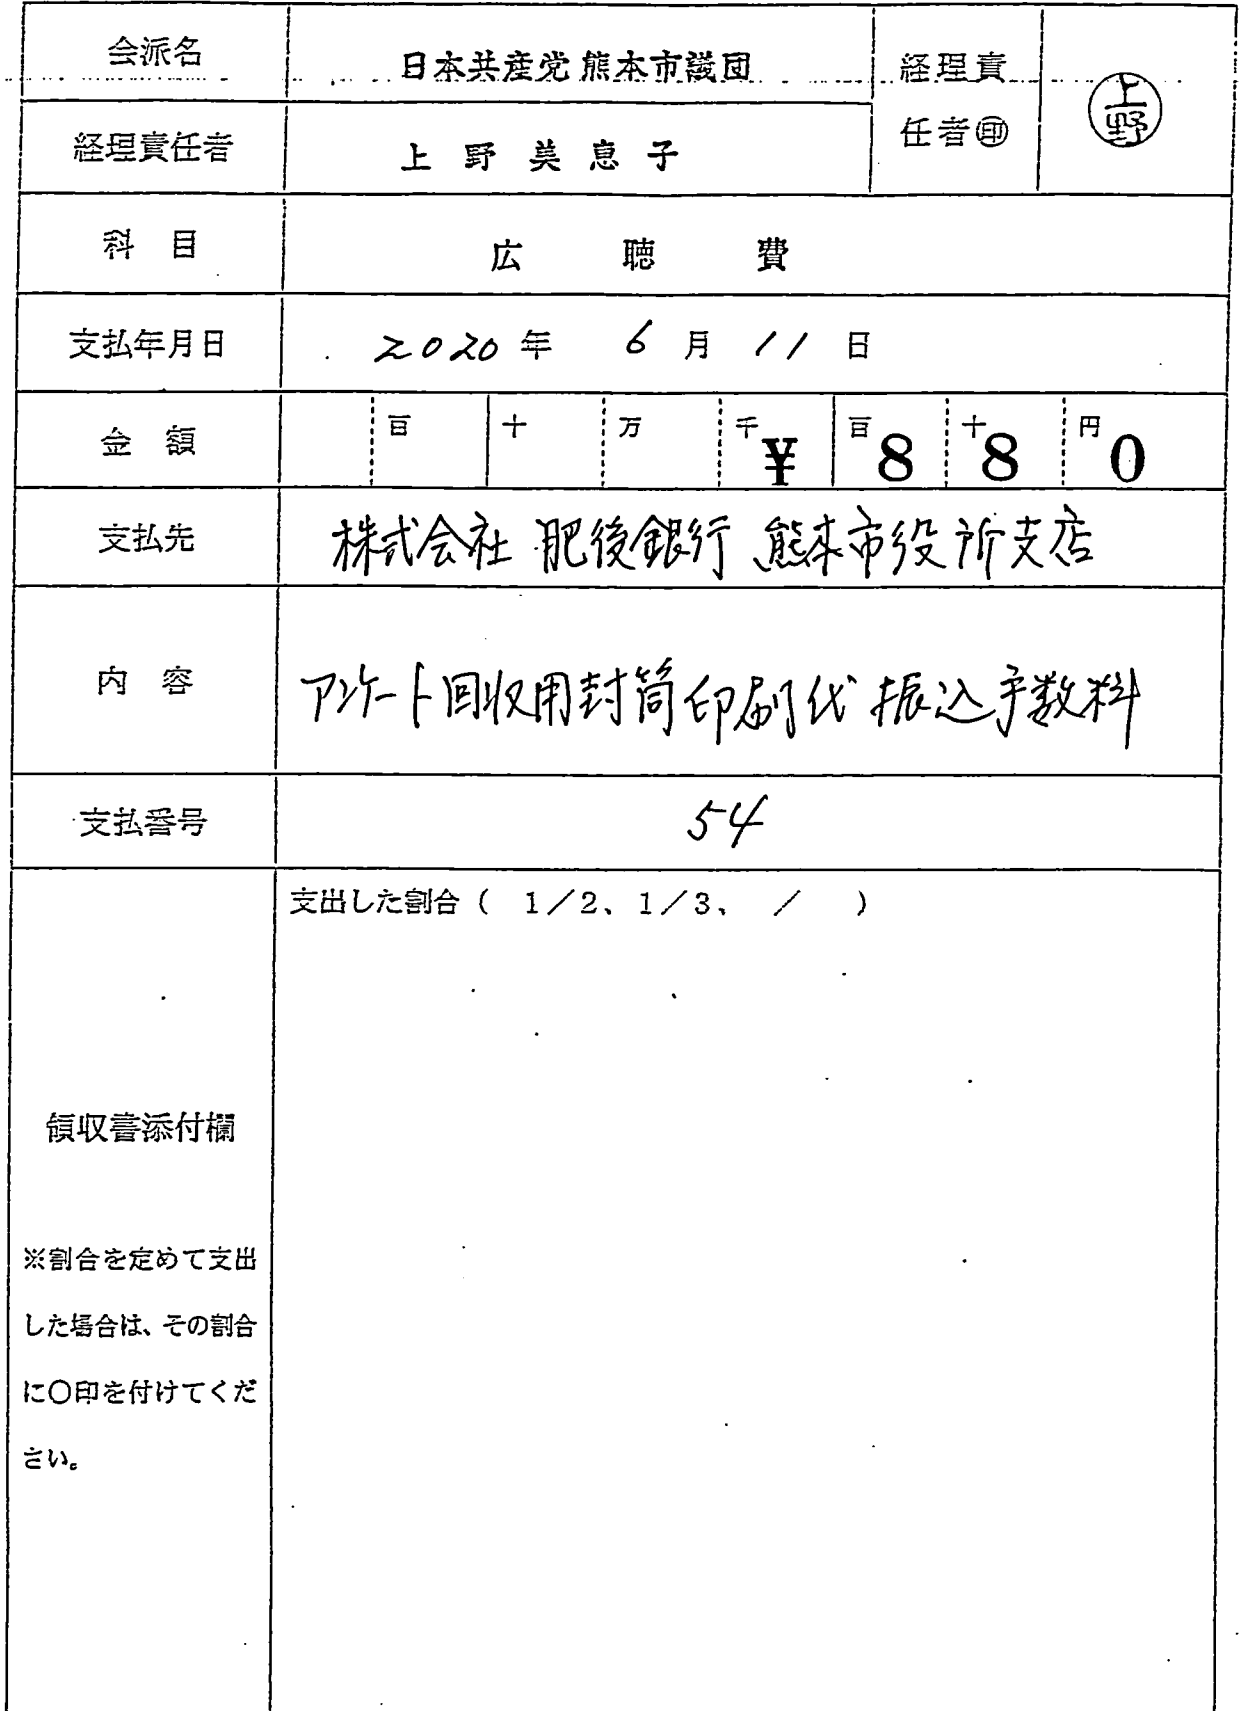 会派名 日本共産党 熊本市議団 経理責
任者㊞ 上野
経理責任者 上野美恵子
科 目 広 聴 費
支払年月日 2020年 6月 11日
金 額 百 十 万 千¥ 百8 十8 円0
支払先 株式会社 肥後銀行 熊本市役所支店
内 容 アンケート回収用封筒印刷代 振込手数料
支払番号 54
支出した割合( 1/2、1/3、 / )
領収書添付欄
※割合を定めて支出
した場合は、その割合
に〇印を付けてくだ
さい。